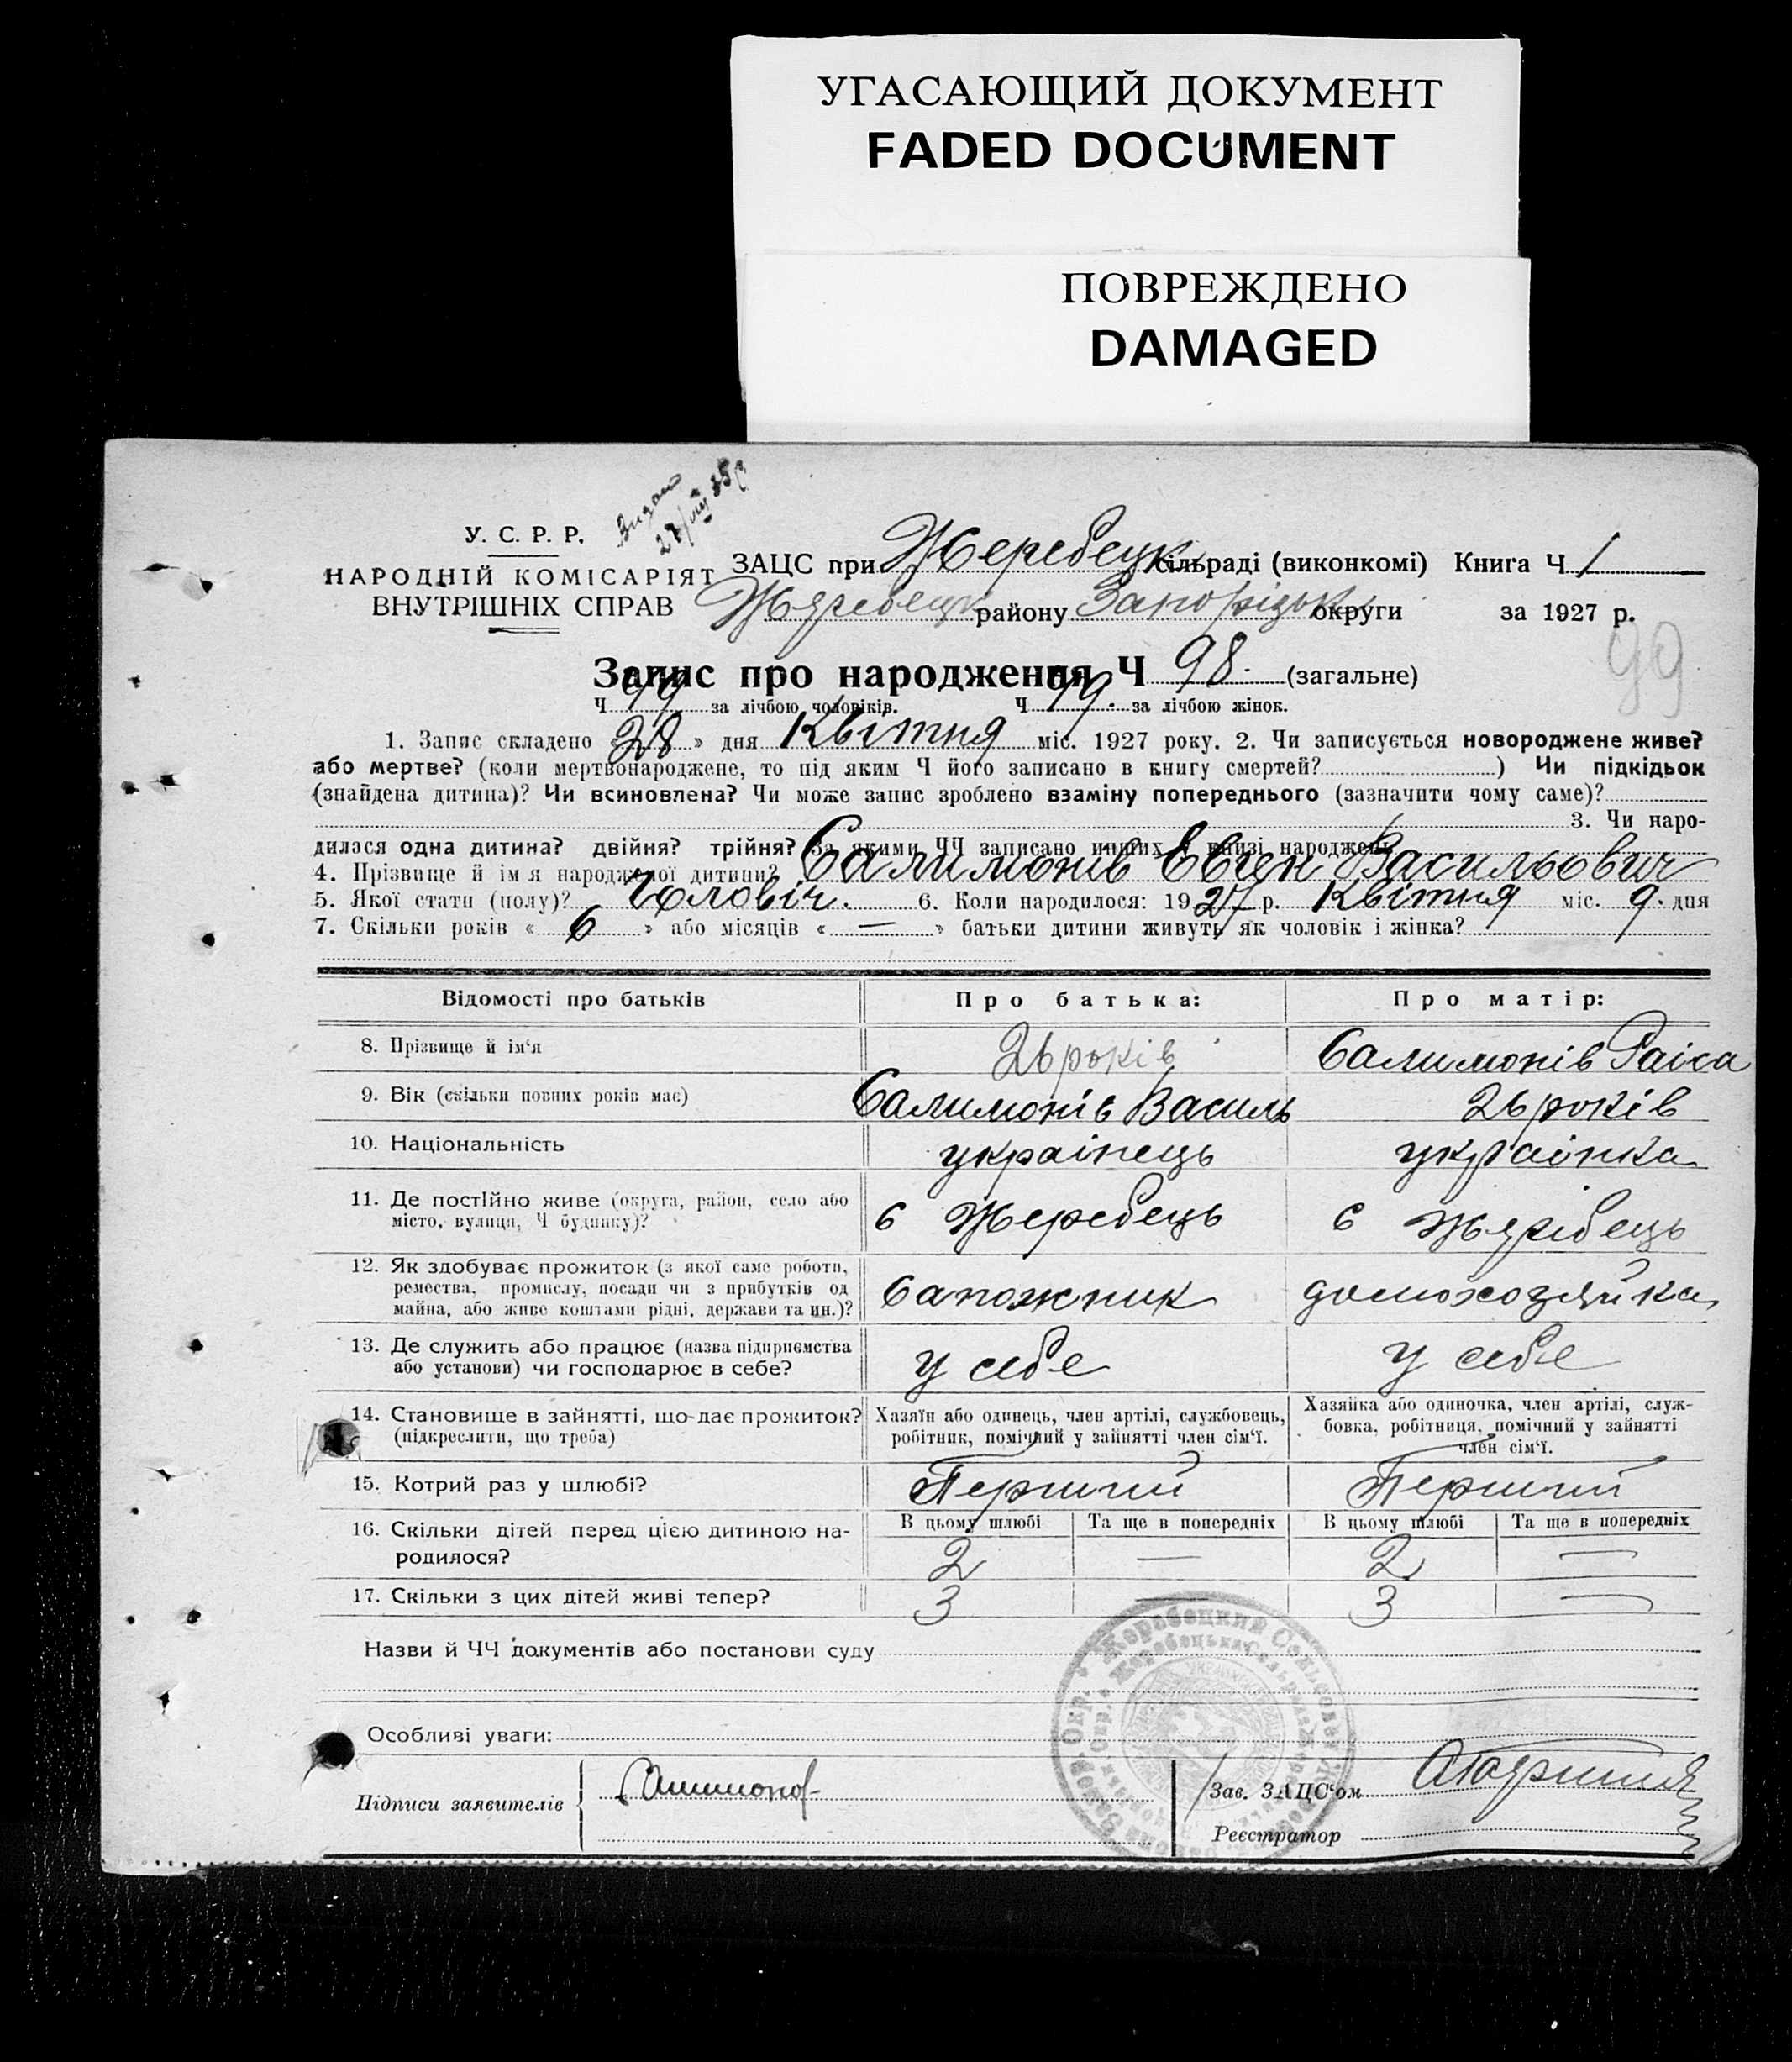 УГАСАЮЩИЙ ДОКУМЕНТ
FADED DOCUMENT
ПОВРЕЖДЕНО
DAMAGED
У. С. Р. Р.
НАРОДНІЙ КОМІСАРІЯТ
ВНУТРІШНІХ СПРАВ
ЗАЦС при Жеребецк. сільраді (виконкомі) Книга Ч 1
Жеребецьк району Запорізьк. округи за 1927 р.
99
Запис про народження Ч 98. (загальне)
Ч за лічбою чоловіків. Ч за лічбою жінок.
1. Запис складено « 28 » дня Квітня міс. 1927 року. 2. Чи записується новороджене живе?
або мертве? (коли мертвонароджене, то під яким Ч його записано в книгу смертей? ) Чи підкідьок
(знайдена дитина)? Чи всиновлена? Чи може запис зроблено взаміну попереднього (зазначити чому саме)?
3. Чи наро-
дилася одна дитина? двійня? трійня? За якими ЧЧ записано инших у книзі народжень
4. Прізвище й ім'я народженої дитини? Салимонів Евген Васильович
5. Якої стати (полу)? Чоловіч. 6. Коли народилося: 1927 р. Квітня міс. 9. дня
7. Скільки років « 6 » або місяців « — » батьки дитини живуть як чоловік і жінка?
Відомості про батьків Про батька: Про матір:
8. Прізвище й ім'я 26 років Салимонів Раіса
9. Вік (скільки повних років має) Салимонів Василь 26 років
10. Національність українець українка
11. Де постійно живе (округа, район, село або
місто, вулиця, Ч будинку)? с Жеребець с Жеребець
12. Як здобуває прожиток (з якої саме роботи,
ремества, промислу, посади чи з прибутків од
майна, або живе коштами рідні, держави та ин.)? Сапожник домохозяйка
13. Де служить або працює (назва підприємства
або установи) чи господарює в себе? у себе у себе
14. Становище в зайнятті, що-дає прожиток?
(підкреслити, що треба)
Хазяїн або одинець, член артілі, службовець,
робітник, помічний у зайнятті член сім'ї.
Хазяйка або одиночка, член артілі, служ-
бовка, робітниця, помічний у зайнятті
член сім'ї.
15. Котрий раз у шлюбі? Перший Перший
16. Скільки дітей перед цією дитиною на-
родилося?
В цьому шлюбі Та ще в попередніх В цьому шлюбі Та ще в попередніх
2 — 2 —
17. Скільки з цих дітей живі тепер? 3 — 3 —
Назви й ЧЧ документів або постанови суду
Особливі уваги:
Підписи заявителів
Зав. ЗАЦС'ом
Реєстратор